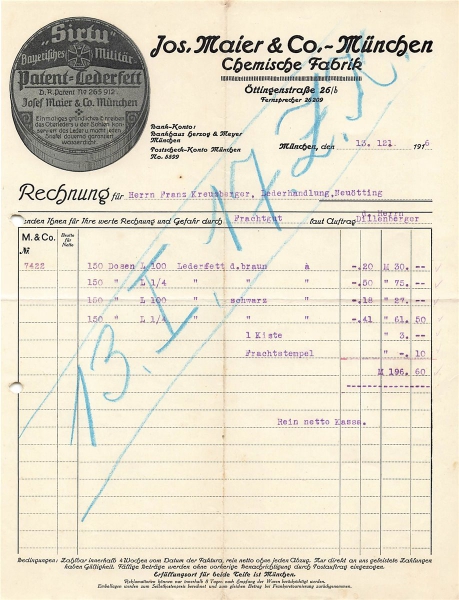 "Sirtu"
Bayerisches Militär-
Patent-Lederfett
D.R. Patent No 265912.
Josef Maier & Co. München
Einmaliges gründliches Einreiben
des Oberleders u. der Sohlen kon-
serviert das Leder u. macht jeden
Stiefel dauernd garantiert
wasserdicht.
Jos. Maier & Co.-München
Chemische Fabrik
Öttingenstraße 26/b
Fernsprecher 26209
Bank-Konto:
Bankhaus Herzog & Meyer
München
Postscheck-Konto München
No. 5899
München, den 13. 12l. 1916
Rechnung für Herrn Franz Kreuzberger, Lederhandlung, Neuötting
Herrn
senden Ihnen für Ihre werte Rechnung und Gefahr durch Frachtgut laut Auftrag Dillenberger
M. & Co. No
7422 150 Dosen L 100 Lederfett d.braun à -.20 M 30.--
150 " L 1/4 " " -.50 " 75.--
150 " L 100 " schwarz -.18 " 27.--
150 " L 1/4 " " -.41 " 61.50
1 Kiste " 3.--
Frachtstempel " -.10
M 196.60
Rein netto Kassa.
13. I. 17
Bedingungen: Zahlbar innerhalb 4 Wochen vom Datum der Faktura, rein netto ohne jeden Abzug. Nur direkt an uns geleistete Zahlungen
haben Gültigkeit. Fällige Beträge werden ohne vorherige Benachrichtigung durch Postauftrag eingezogen.
Erfüllungsort für beide Teile ist München.
Reklamationen können nur innerhalb 8 Tagen nach Empfang der Waren berücksichtigt werden.
Emballagen werden zum Selbstkostenpreis berechnet und zum gleichen Betrag bei Franko-Retournierung zurückgenommen.